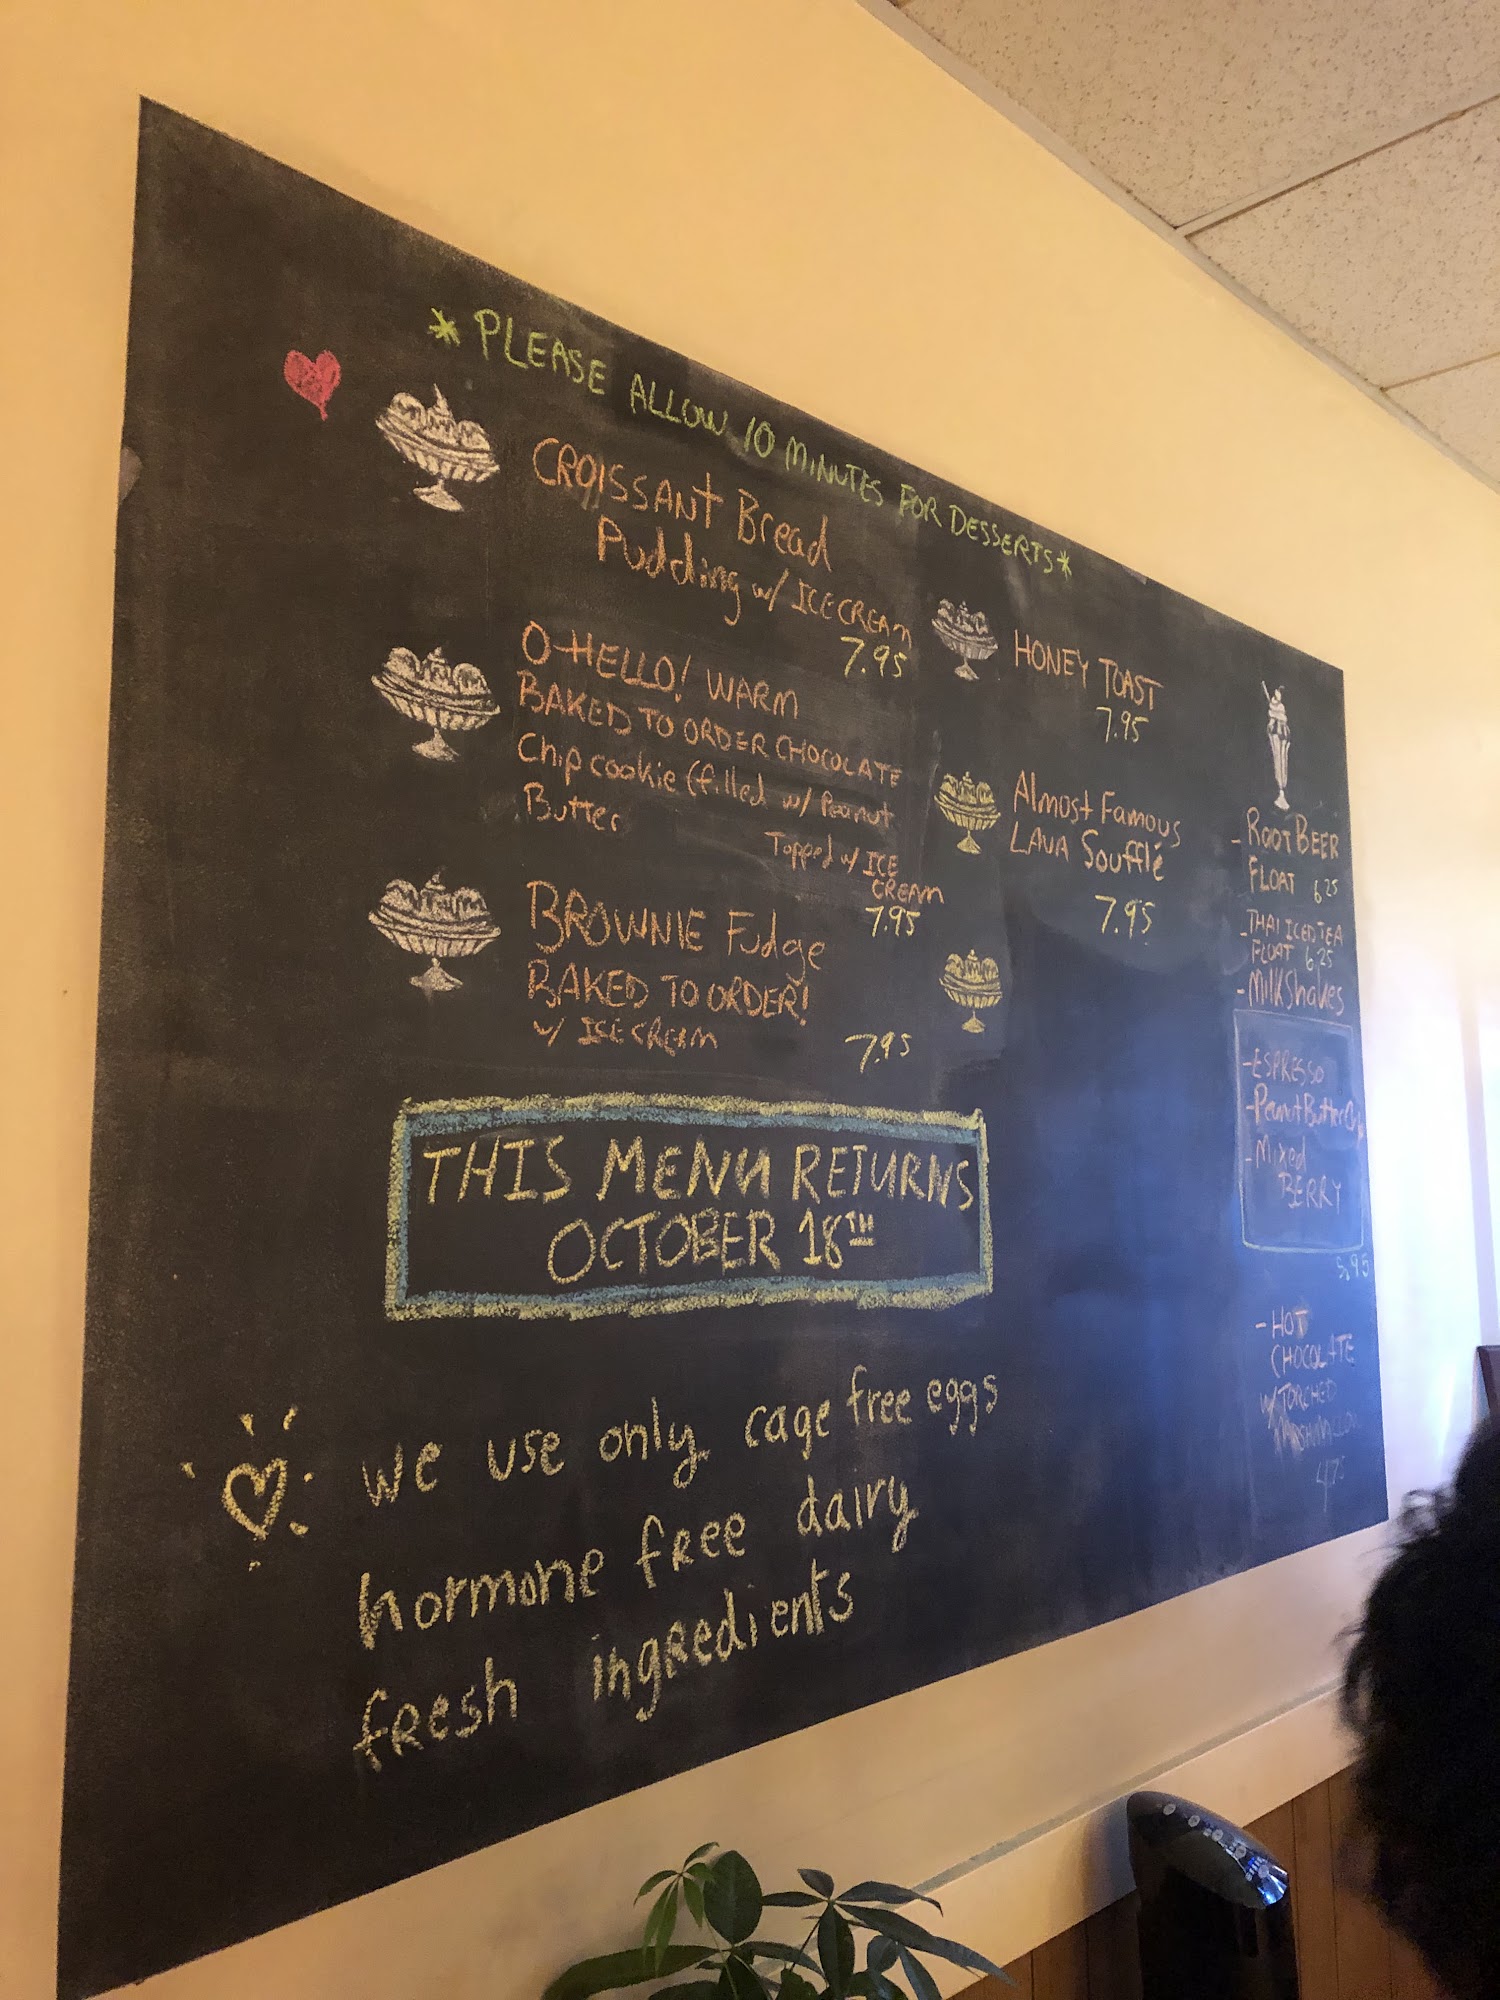 * PLEASE ALLOW 10 MINUTES FOR DESSERTS *
CROISSANT Bread
Pudding w/ ICE CREAM
7.95
O-HELLO! WARM
BAKED TO ORDER CHOCOLATE
Chip cookie (filled w/ Peanut
Butter
Topped w/ ICE
CREAM
7.95
BROWNIE Fudge
BAKED TO ORDER!
w/ ICE CREAM
7.95
HONEY TOAST
7.95
Almost Famous
LAVA Soufflé
7.95
- ROOT BEER
FLOAT 6.25
- THAI ICED TEA
FLOAT 6.25
- MilkShakes
- ESPRESSO
- Peanut Butter
- Mixed
BERRY
5.95
- HOT
CHOCOLATE
w/ TORCHED
4.75
THIS MENU RETURNS
OCTOBER 18TH
we use only cage free eggs
hormone free dairy
fresh ingredients